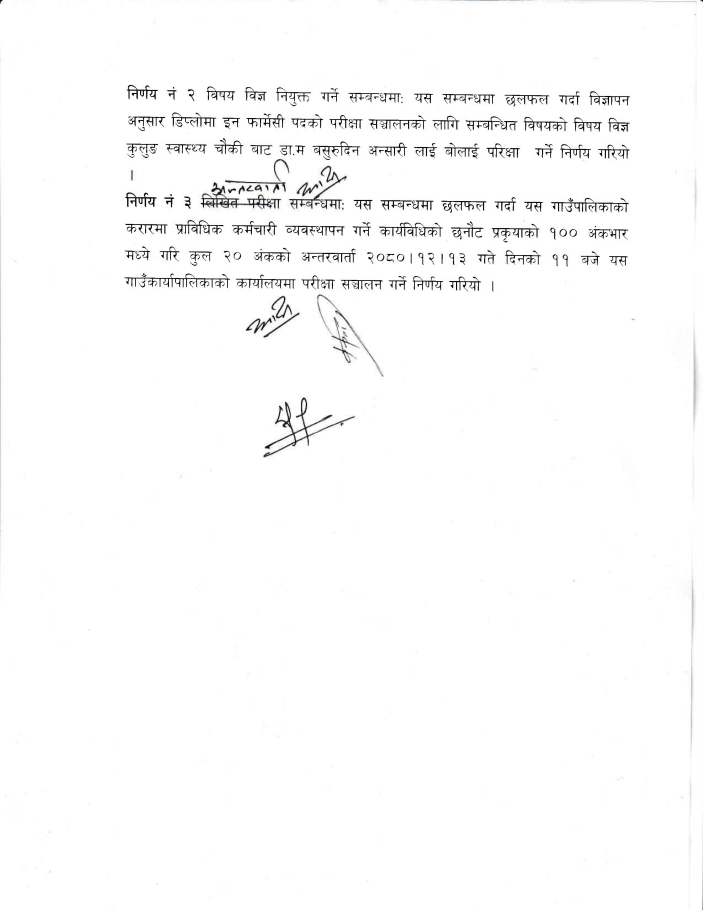 निर्णय नं २ विषय विज्ञ नियुक्त गर्ने सम्बन्धमाः यस सम्बन्धमा छलफल गर्दा विज्ञापन
अनुसार डिप्लोमा इन फार्मेसी पदको परीक्षा सञ्चालनको लागि सम्बन्धित विषयको विषय विज्ञ
कुलुङ स्वास्थ्य चौकी बाट डा.म बसुरुदिन अन्सारी लाई बोलाई परिक्षा गर्ने निर्णय गरियो
।
अन्तरवार्ता
निर्णय नं ३ लिखित परीक्षा सम्बन्धमाः यस सम्बन्धमा छलफल गर्दा यस गाउँपालिकाको
करारमा प्राविधिक कर्मचारी व्यवस्थापन गर्ने कार्यविधिको छनौट प्रकृयाको १०० अंकभार
मध्ये गरि कुल २० अंकको अन्तरवार्ता २०८०।१२।१३ गते दिनको ११ बजे यस
गाउँकार्यापालिकाको कार्यालयमा परीक्षा सञ्चालन गर्ने निर्णय गरियो ।